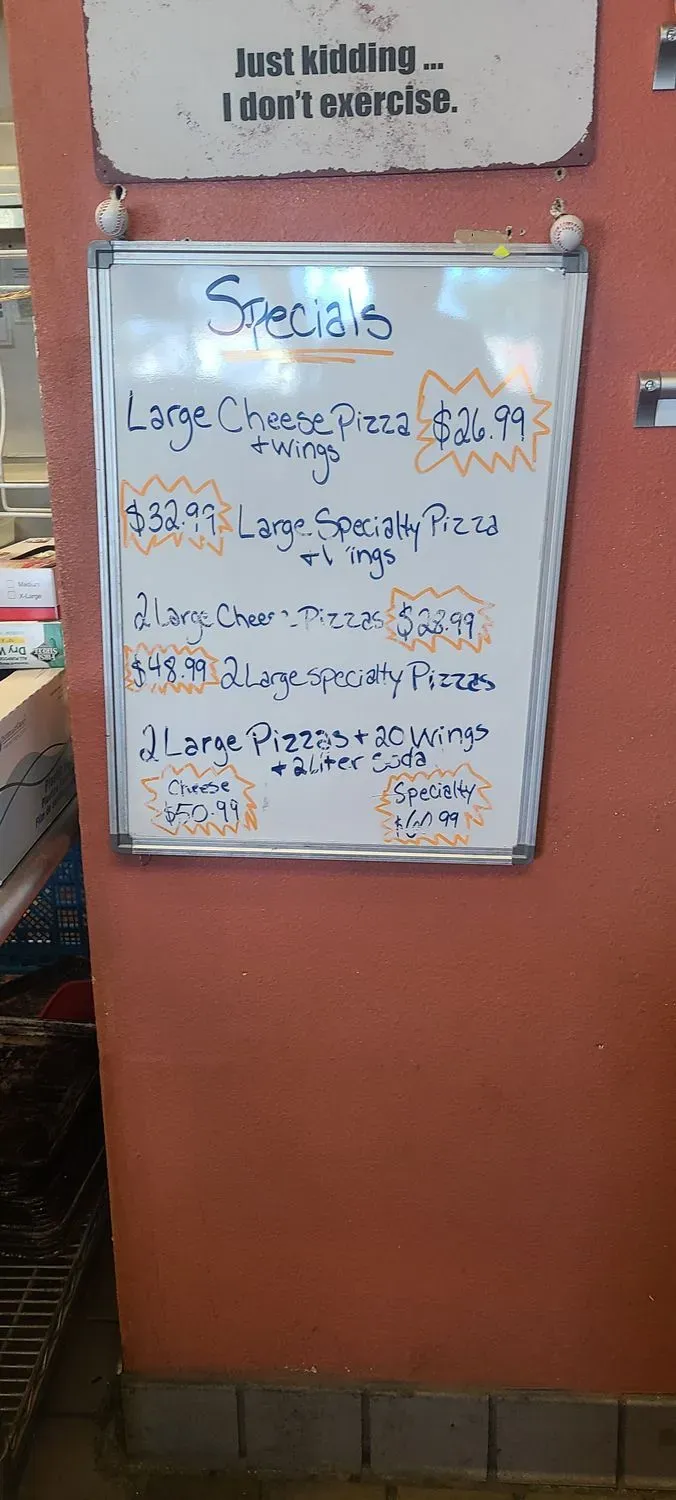 Just kidding ...
I don't exercise.
Specials
Large Cheese Pizza $26.99
+ wings
$32.99 Large Specialty Pizza
+
2 Large Pizzas $28.99
$48.99 2 Large Specialty Pizzas
2 Large Pizzas + 20 Wings
+ 2 Liter Soda
Cheese Specialty
$50.99
Medium
X-Large